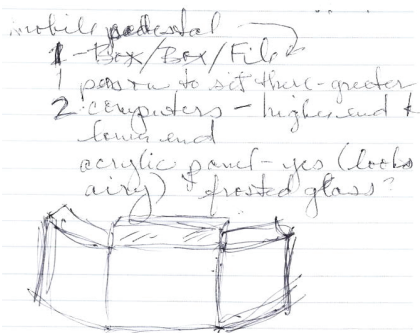 mobile pedestal
1 - Box/Box/File
1 person to sit there - greeter
2 computers - higher end &
lower end
acrylic panel - yes (looks
airy) & frosted glass?